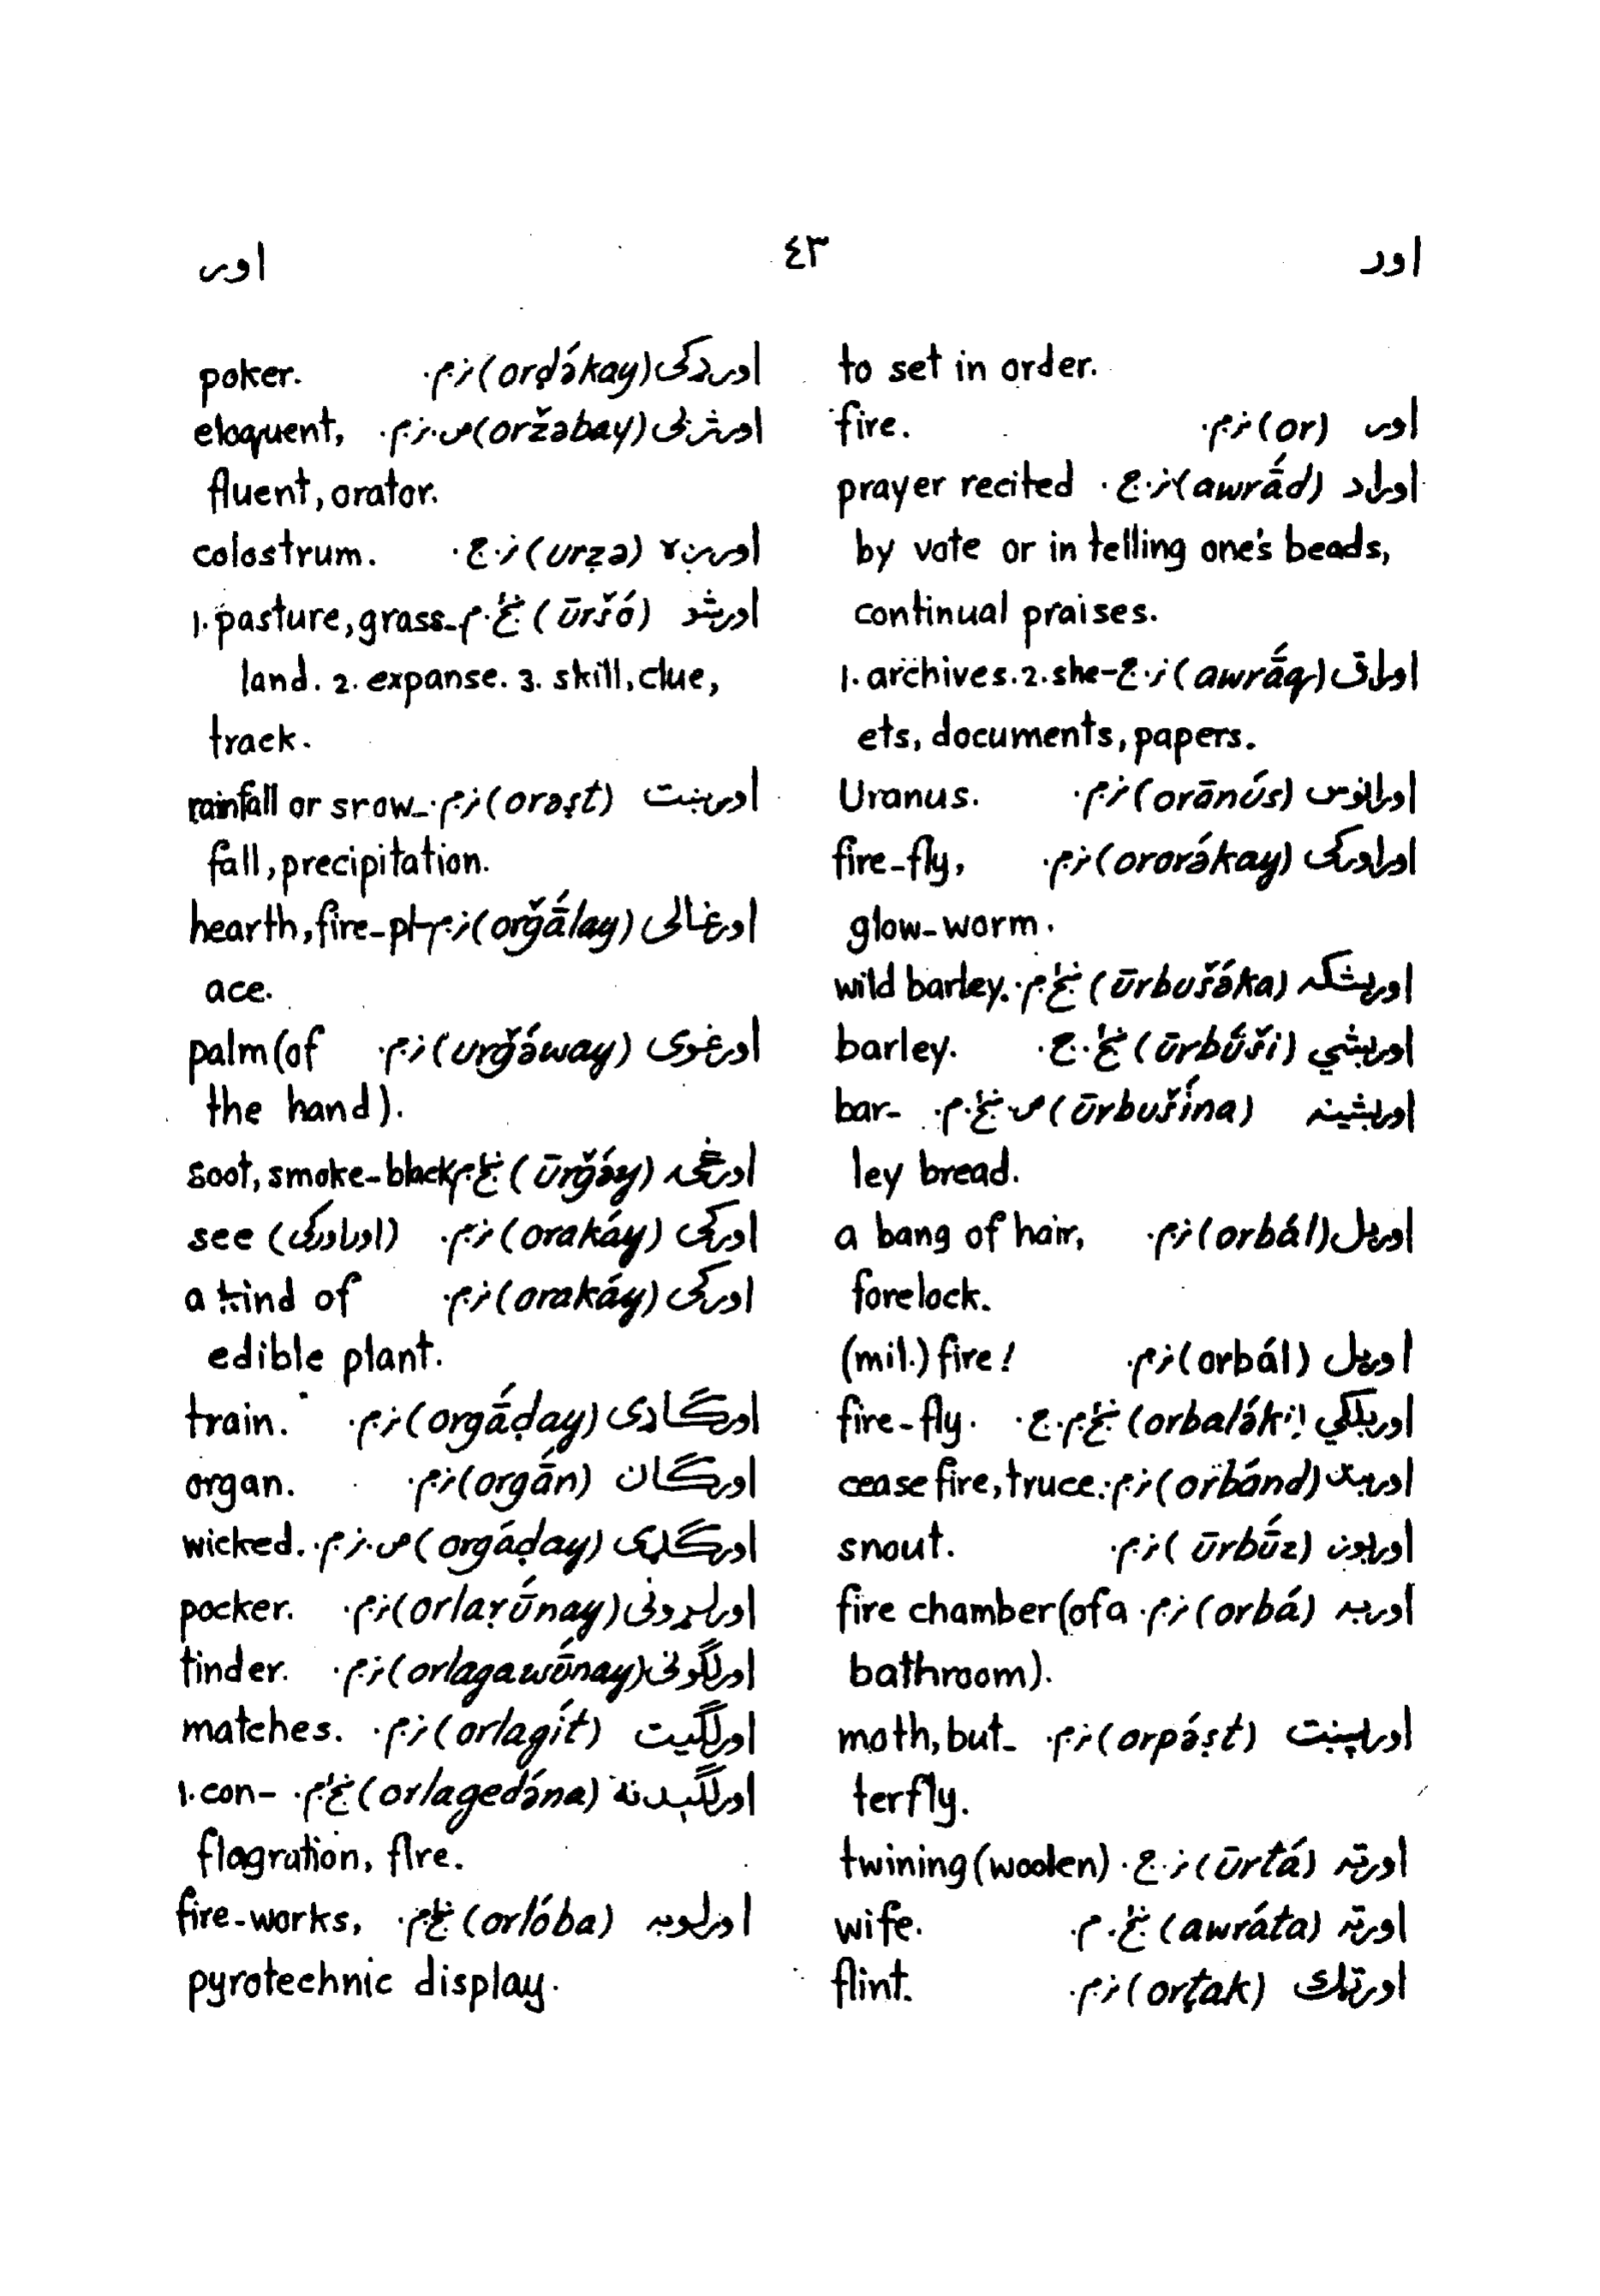 اور ٤٣ اورد
to set in order.
اور (or) نر.م. fire.
اوراد (awrā́d) نر.ج. prayer recited
by vote or in telling one's beads,
continual praises.
اوراق (awrā́q) نر.ج. 1. archives. 2. she-
ets, documents, papers.
اورانوس (orānús) نر.م. Uranus.
اوراورکی (ororə́kay) نر.م. fire-fly,
glow-worm.
اوربشکه (ūrbušə́ka) ښځ.م. wild barley.
اوربشي (ūrbū́ši) ښځ.ج. barley.
اوربشینه (ūrbušína) ص.ښځ.م. bar-
ley bread.
اوربل (orbál) نر.م. a bang of hair,
forelock.
اوربل (orbál) نر.م. (mil.) fire!
اوربلکي (orbalə́ki) ښځ.م.ج. fire-fly.
اوربند (orbánd) نر.م. cease fire, truce.
اوربوز (ūrbū́z) نر.م. snout.
اوربه (orbá) نر.م. fire chamber (of a
bathroom).
اورپښت (orpə́ṣt) نر.م. moth, but-
terfly.
اورته (ūrtá) نر.ج. twining (woolen)
اورته (awráta) ښځ.م. wife.
اورټک (orṭak) نر.م. flint.
اورډکی (orḍə́kay) نر.م. poker.
اورژبی (oržəbay) ص.نر.م. eloquent,
fluent, orator.
اورږه (urẓə) نر.ج. colostrum.
اورشو (ūršó) ښځ.م. 1. pasture, grass-
land. 2. expanse. 3. skill, clue,
track.
اورښت (orəṣt) نر.م. rainfall or srow-
fall, precipitation.
اورغالی (orğā́lay) نر.م. hearth, fire-pl-
ace.
اورغوی (urğə́way) نر.م. palm (of
the hand).
اورغۍ (ūrğə́y) ښځ.م. soot, smoke-black
اورکی (orakáy) نر.م. see (اوراورکی)
اورکی (orakáy) نر.م. a kind of
edible plant.
اورگاډی (orgā́ḍay) نر.م. train.
اورگان (orgā́n) نر.م. organ.
اورگډی (orgáḍay) ص.نر.م. wicked.
اورلړونی (orlaṛū́nay) نر.م. pocker.
اورلگونی (orlagawū́nay) نر.م. tinder.
اورلگیت (orlagít) نر.م. matches.
اورلگېدنه (orlagedə́na) ښځ.م. 1. con-
flagration, fire.
اورلوبه (orlóba) ښځ.م. fire-works,
pyrotechnic display.